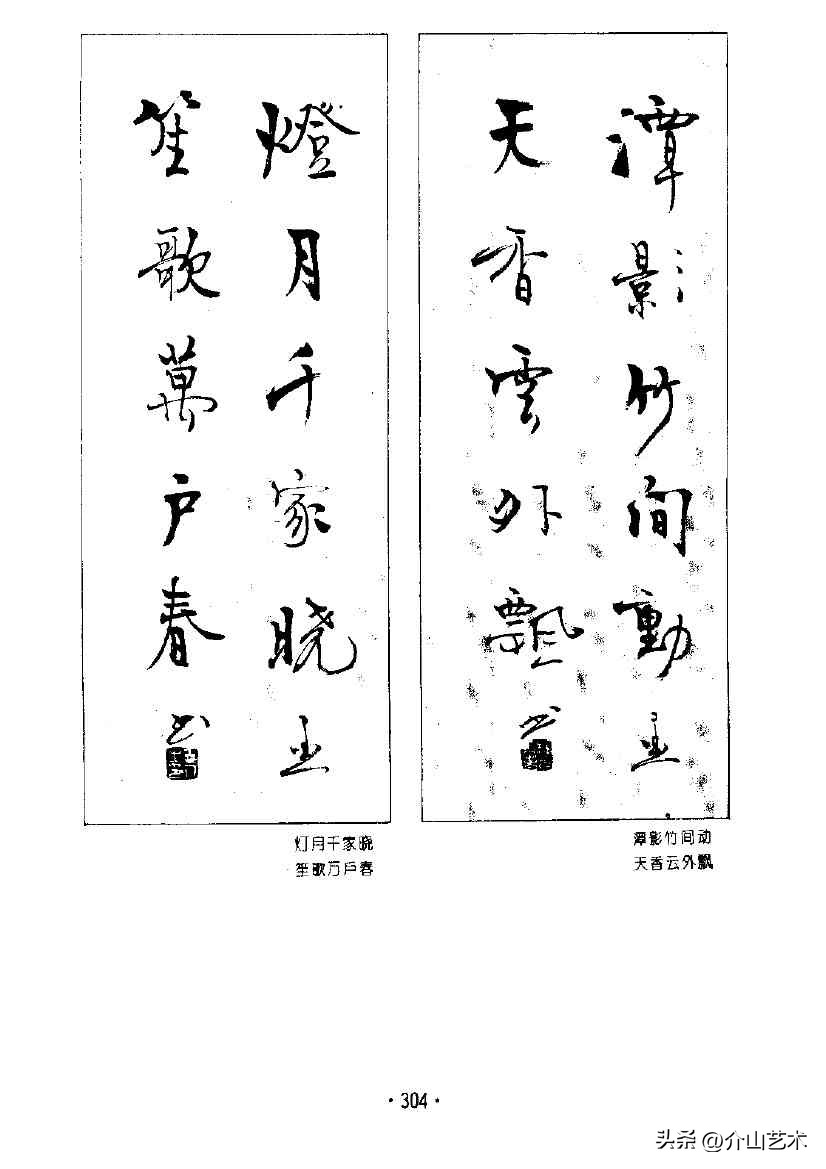 潭影竹间動
天香雲外飄
潭影竹间动
天香云外飘
燈月千家晓
笙歌萬户春
灯月千家晓
笙歌万户春
·304·
头条 @介山艺术